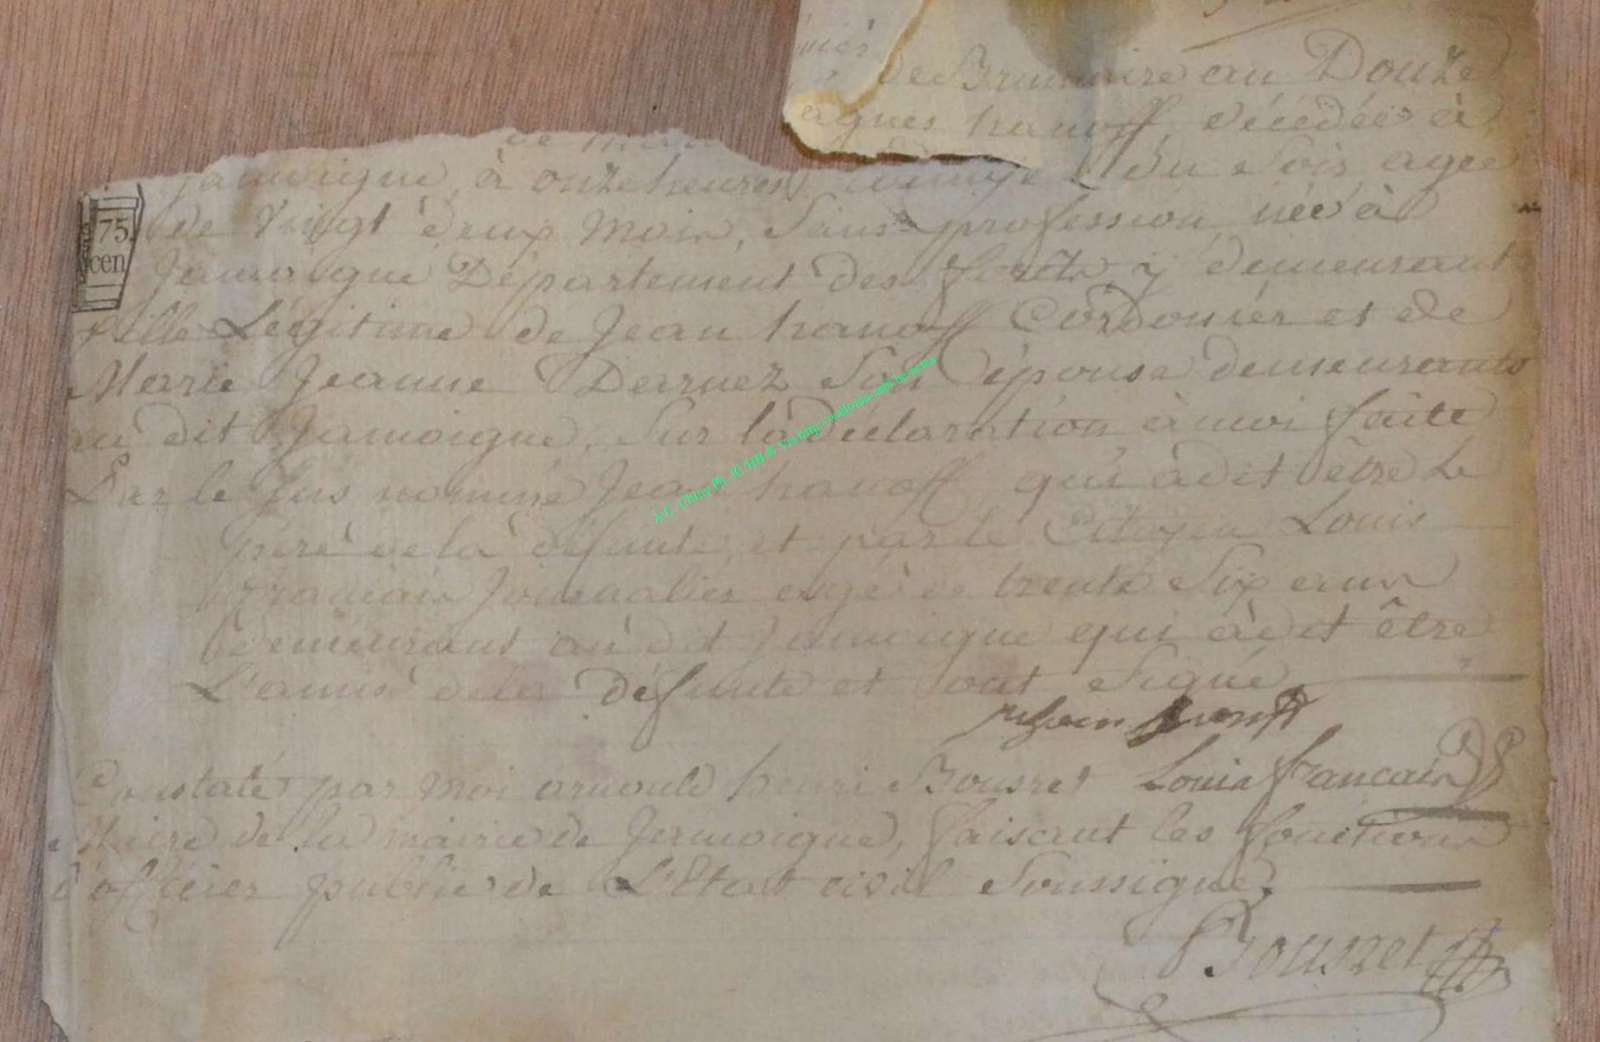 de Brumaire an Douze
agnes hanoff, décédée à
Jamoigne, à onze heures du Soir, agée
75 cen
de Vingt deux Mois, Sans profession, née à
Jamoigne Département des forêts y demeurant
fille Légitime de Jean hanoff Cordonier et de
Marie Jeanne Dernez Son épouse demeurants
au dit Jamoigne, Sur la déclaration à moi faite
Par le Sus nommé Jean hanoff qui à dit être le
pere de la défunte, et par le Citoyen Louis
français Journalier agé de trente Six ans
demeurant au dit Jamoigne qui à dit être
L'amis de la défunte et ont Signé
Constaté par Moi arnould henri Bousret Louis francais
Maire de la mairie de Jamoigne, faisant les fonctions
d'officier public de L'Etat civil Soussigné.
Bousret